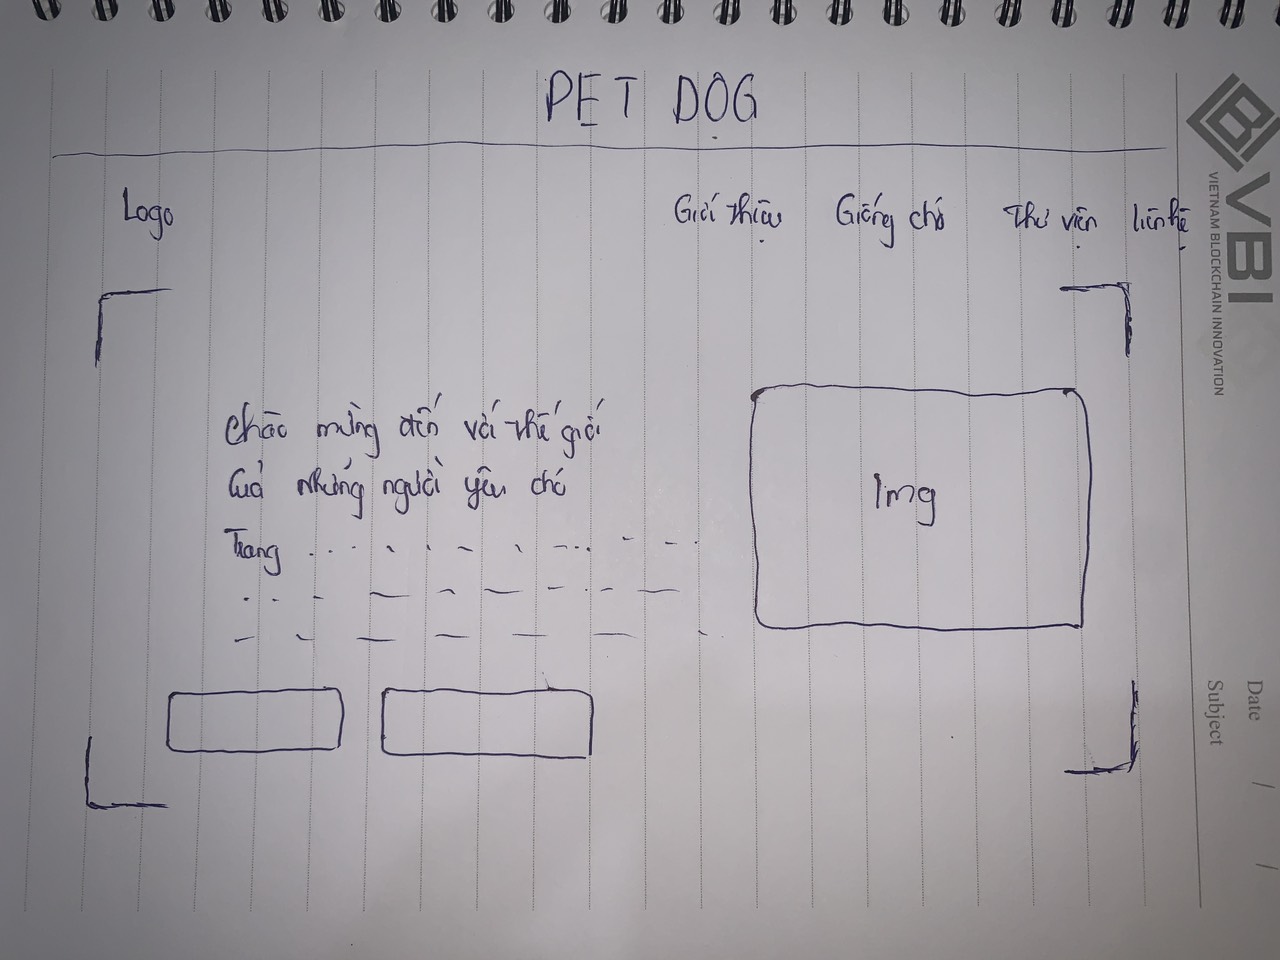 PET DOG
Logo Giới thiệu Giống chó Thư viện liên hệ
Chào mừng đến với thế giới
của những người yêu chó
Trang
Img
VBI
VIETNAM BLOCKCHAIN INNOVATION
Date / /
Subject